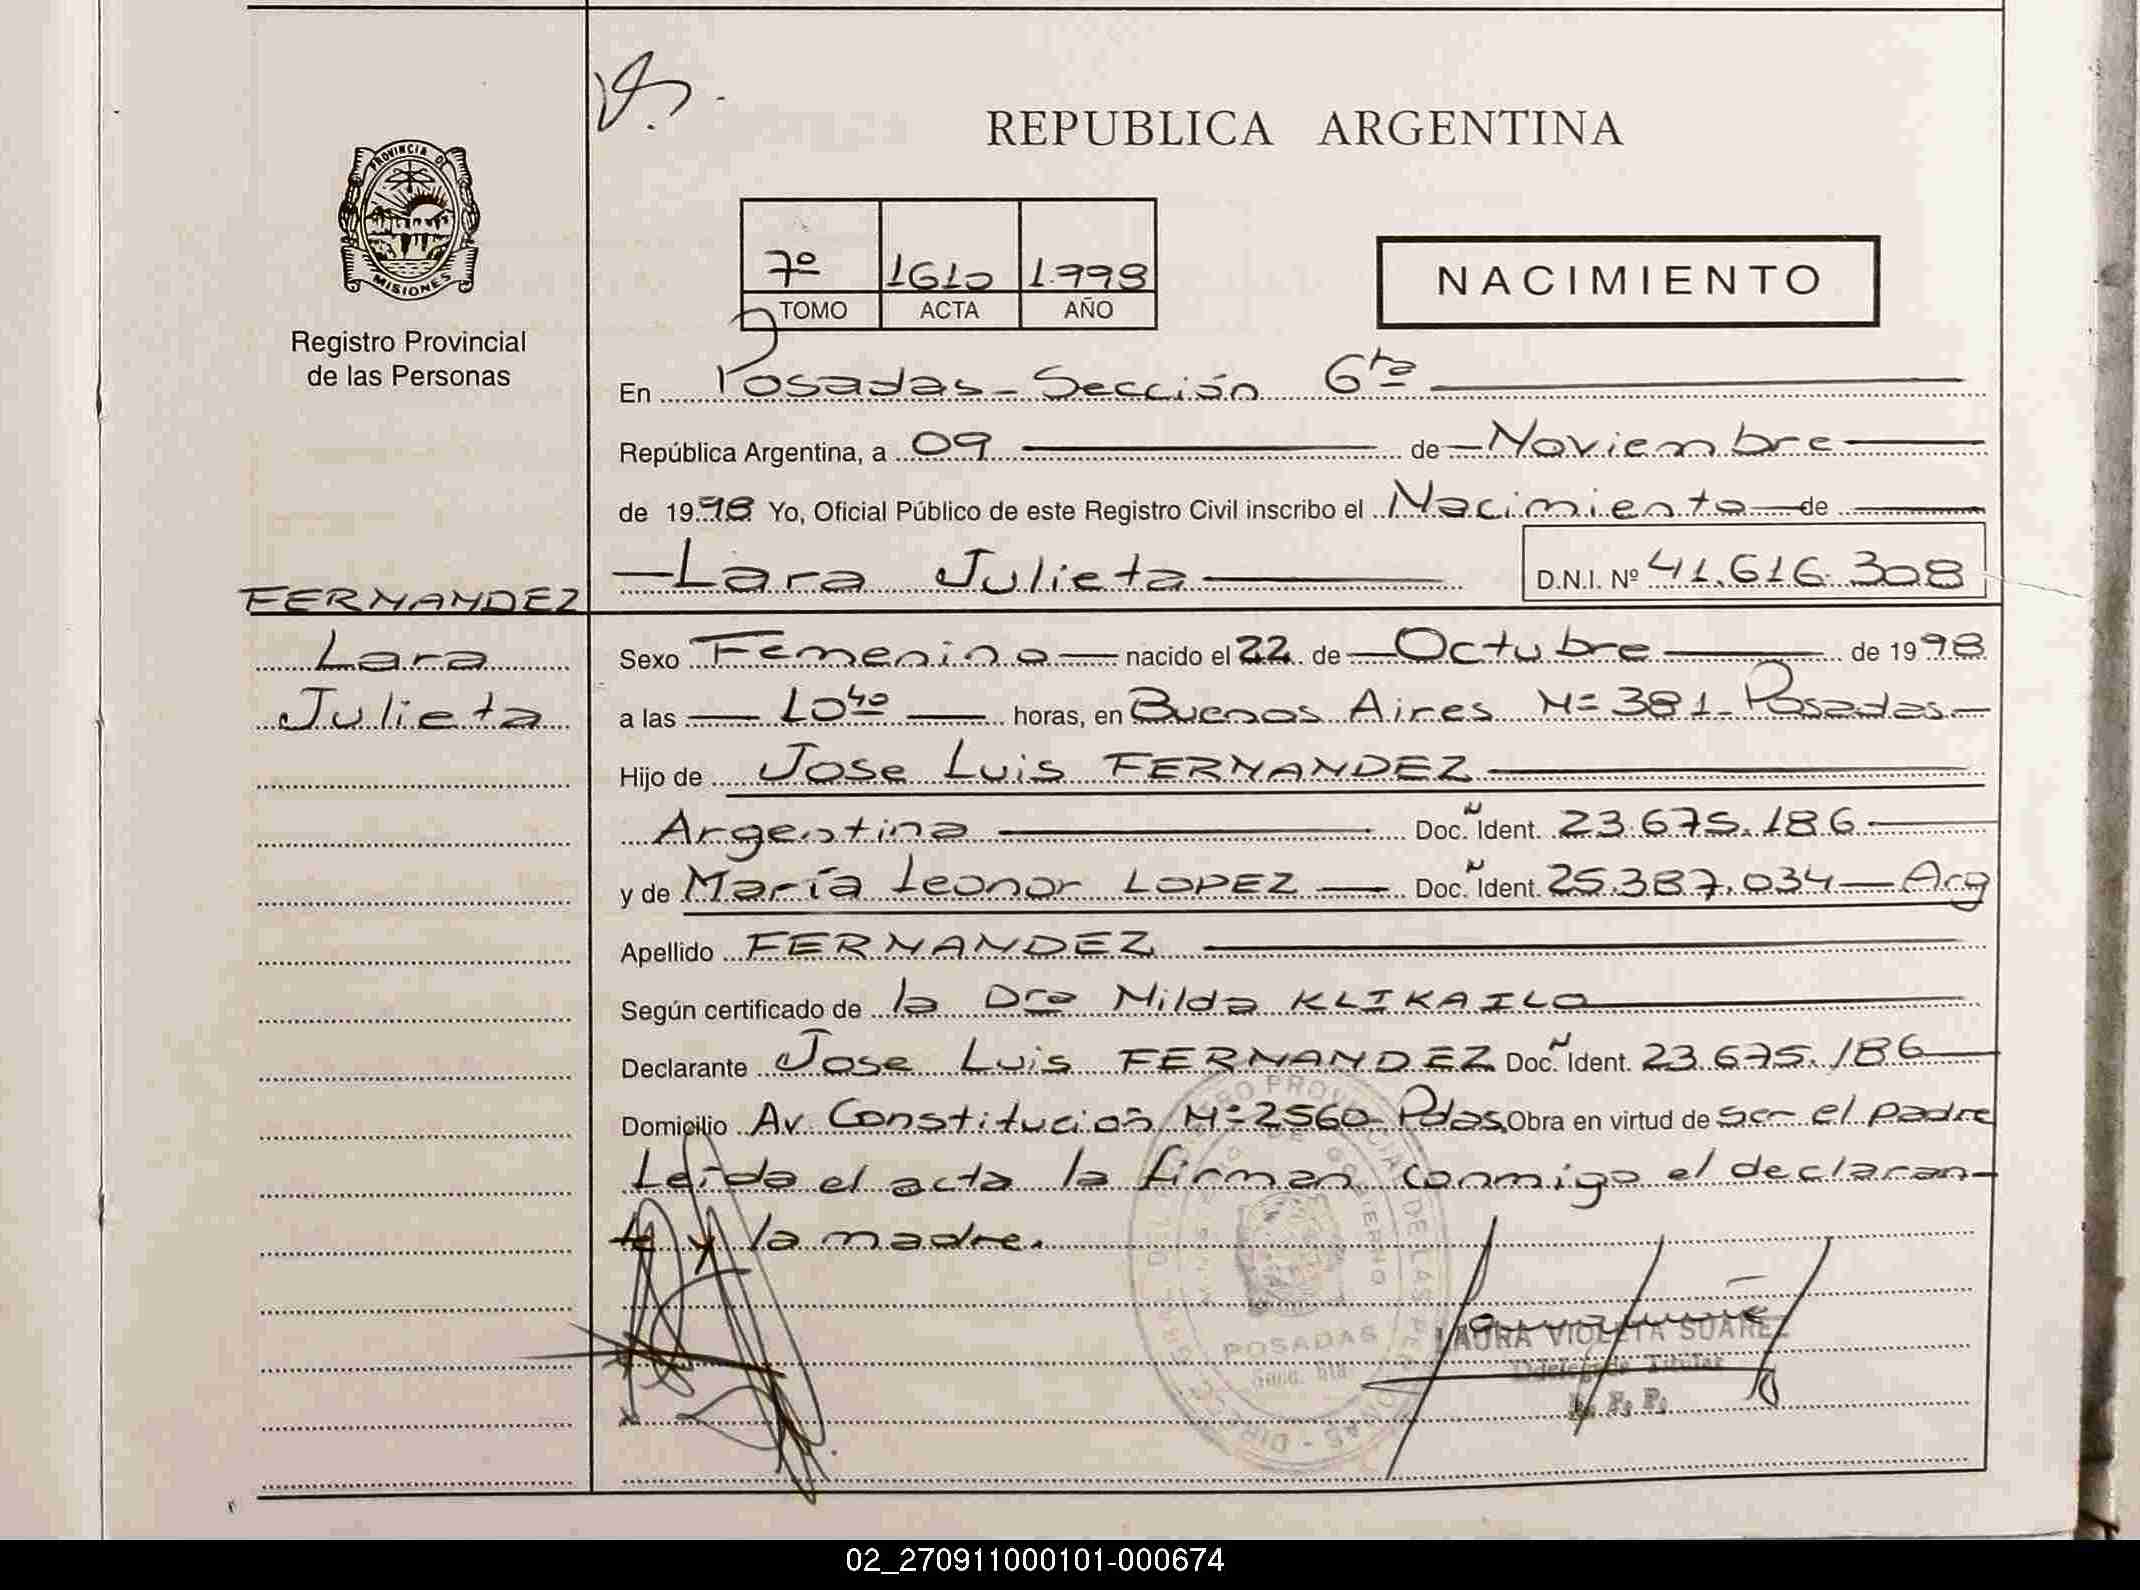 REPUBLICA ARGENTINA
PROVINCIA DE MISIONES
Registro Provincial
de las Personas
7º 1610 1.998
TOMO ACTA AÑO
NACIMIENTO
En Posadas - Sección 6ta
República Argentina, a 09 de Noviembre
de 1998 Yo, Oficial Público de este Registro Civil inscribo el Nacimiento de
Lara Julieta D.N.I. Nº 41.616.308
FERNANDEZ
Lara
Julieta
Sexo Femenino nacido el 22 de Octubre de 1998
a las 10 40 horas, en Buenos Aires Nº 381 - Posadas
Hijo de Jose Luis FERNANDEZ
Argentina Doc. Ident. 23.675.186
y de María Leonor LOPEZ Doc. Ident. 25.387.034 - Arg
Apellido FERNANDEZ
Según certificado de la Dra Nilda KLIKAILO
Declarante Jose Luis FERNANDEZ Doc. Ident. 23.675.186
Domicilio Av. Constitución Nº 2560 - Pdas. Obra en virtud de ser el padre
Leída el acta la firman conmigo el declaran-
te y la madre.
POSADAS
LAURA VIOLETA SUAREZ
Titular
R. P. P.
02_270911000101-000674